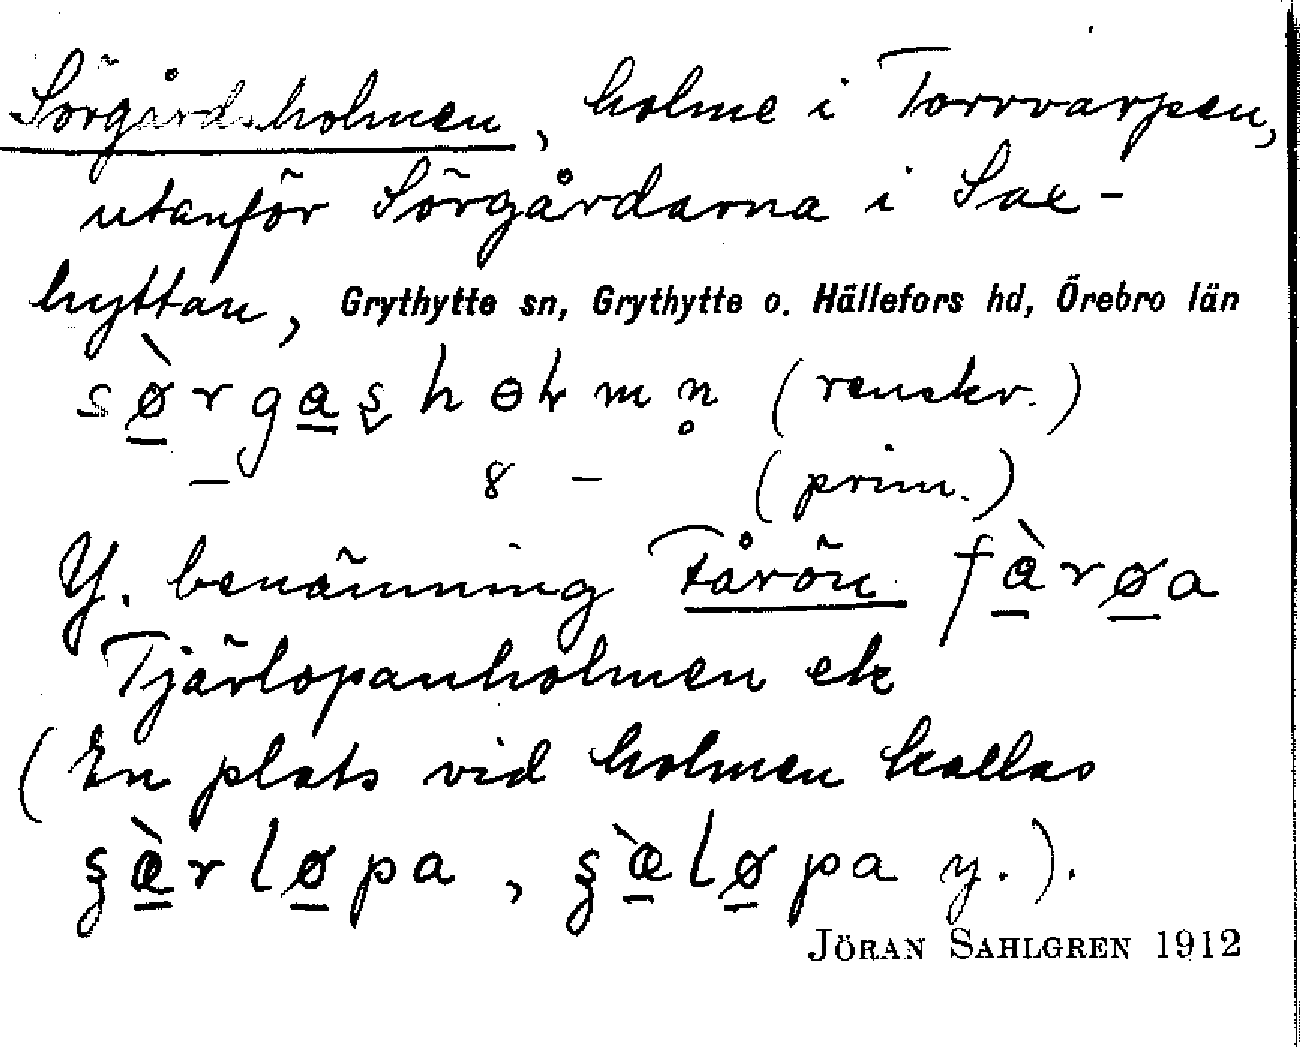 Sörgårdsholmen, holme i Torrvarpen,
utanför Sörgårdarna i Sax-
hyttan, Grythytte sn, Grythytte o. Hällefors hd, Örebro län
sø̀rgaʂhɵɫmn̥ (renskr.)
– 8 – (prim.)
Y. benämning Fårön fàrøa
Tjärlopanholmen ek
(En plats vid holmen kallas
ʂæ̀rløpa, ʂæ̀løpa y.).
JÖRAN SAHLGREN 1912